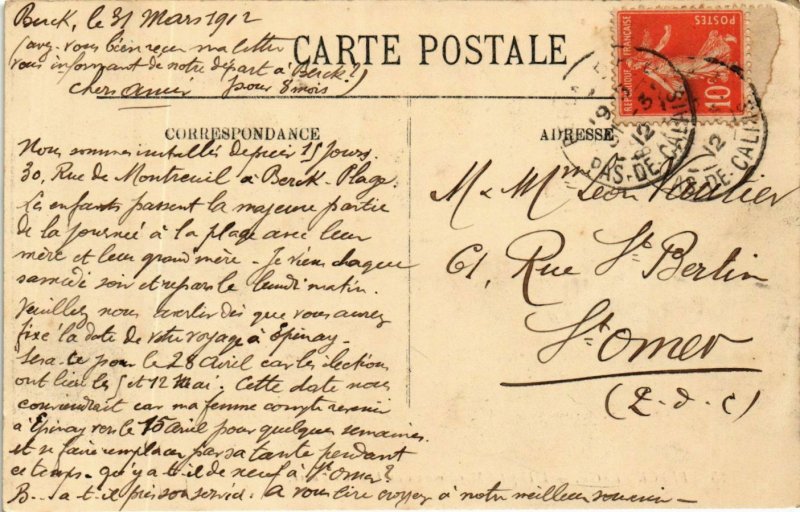 Berck, le 31 Mars 1912
(avez-vous bien reçu ma lettre
vous informant de notre départ à Berck?)
Chers pour 8 mois
CARTE POSTALE
CORRESPONDANCE
Nous sommes installés depuis 15 jours.
30, Rue de Montreuil à Berck-Plage.
Les enfants passent la majeure partie
de la journée à la plage avec leur
mère et leur grand'mère - Je viens chaque
samedi soir et repars le lundi matin.
Veuillez nous avertir dès que vous aurez
fixé la date de votre voyage à Epinay -
Sera-ce pour le 28 avril car les élections
ont lieu les 5 et 12 Mai. Cette date nous
conviendrait car ma femme compte revenir
à Epinay vers le 15 avril pour quelques semaines
et se faire remplacer par sa tante pendant
ce temps - qu'y a-t-il de neuf à St Omer?
B... a-t-il pris son service. A vous lire croyez à notre meilleur souvenir -
ADRESSE
M & Mme Léon
61, Rue St Bertin
St Omer
(P-d-C)
REPUBLIQUE FRANÇAISE
POSTES
10
PAS-DE-CALAIS
12
PAS-DE-CALAIS
12